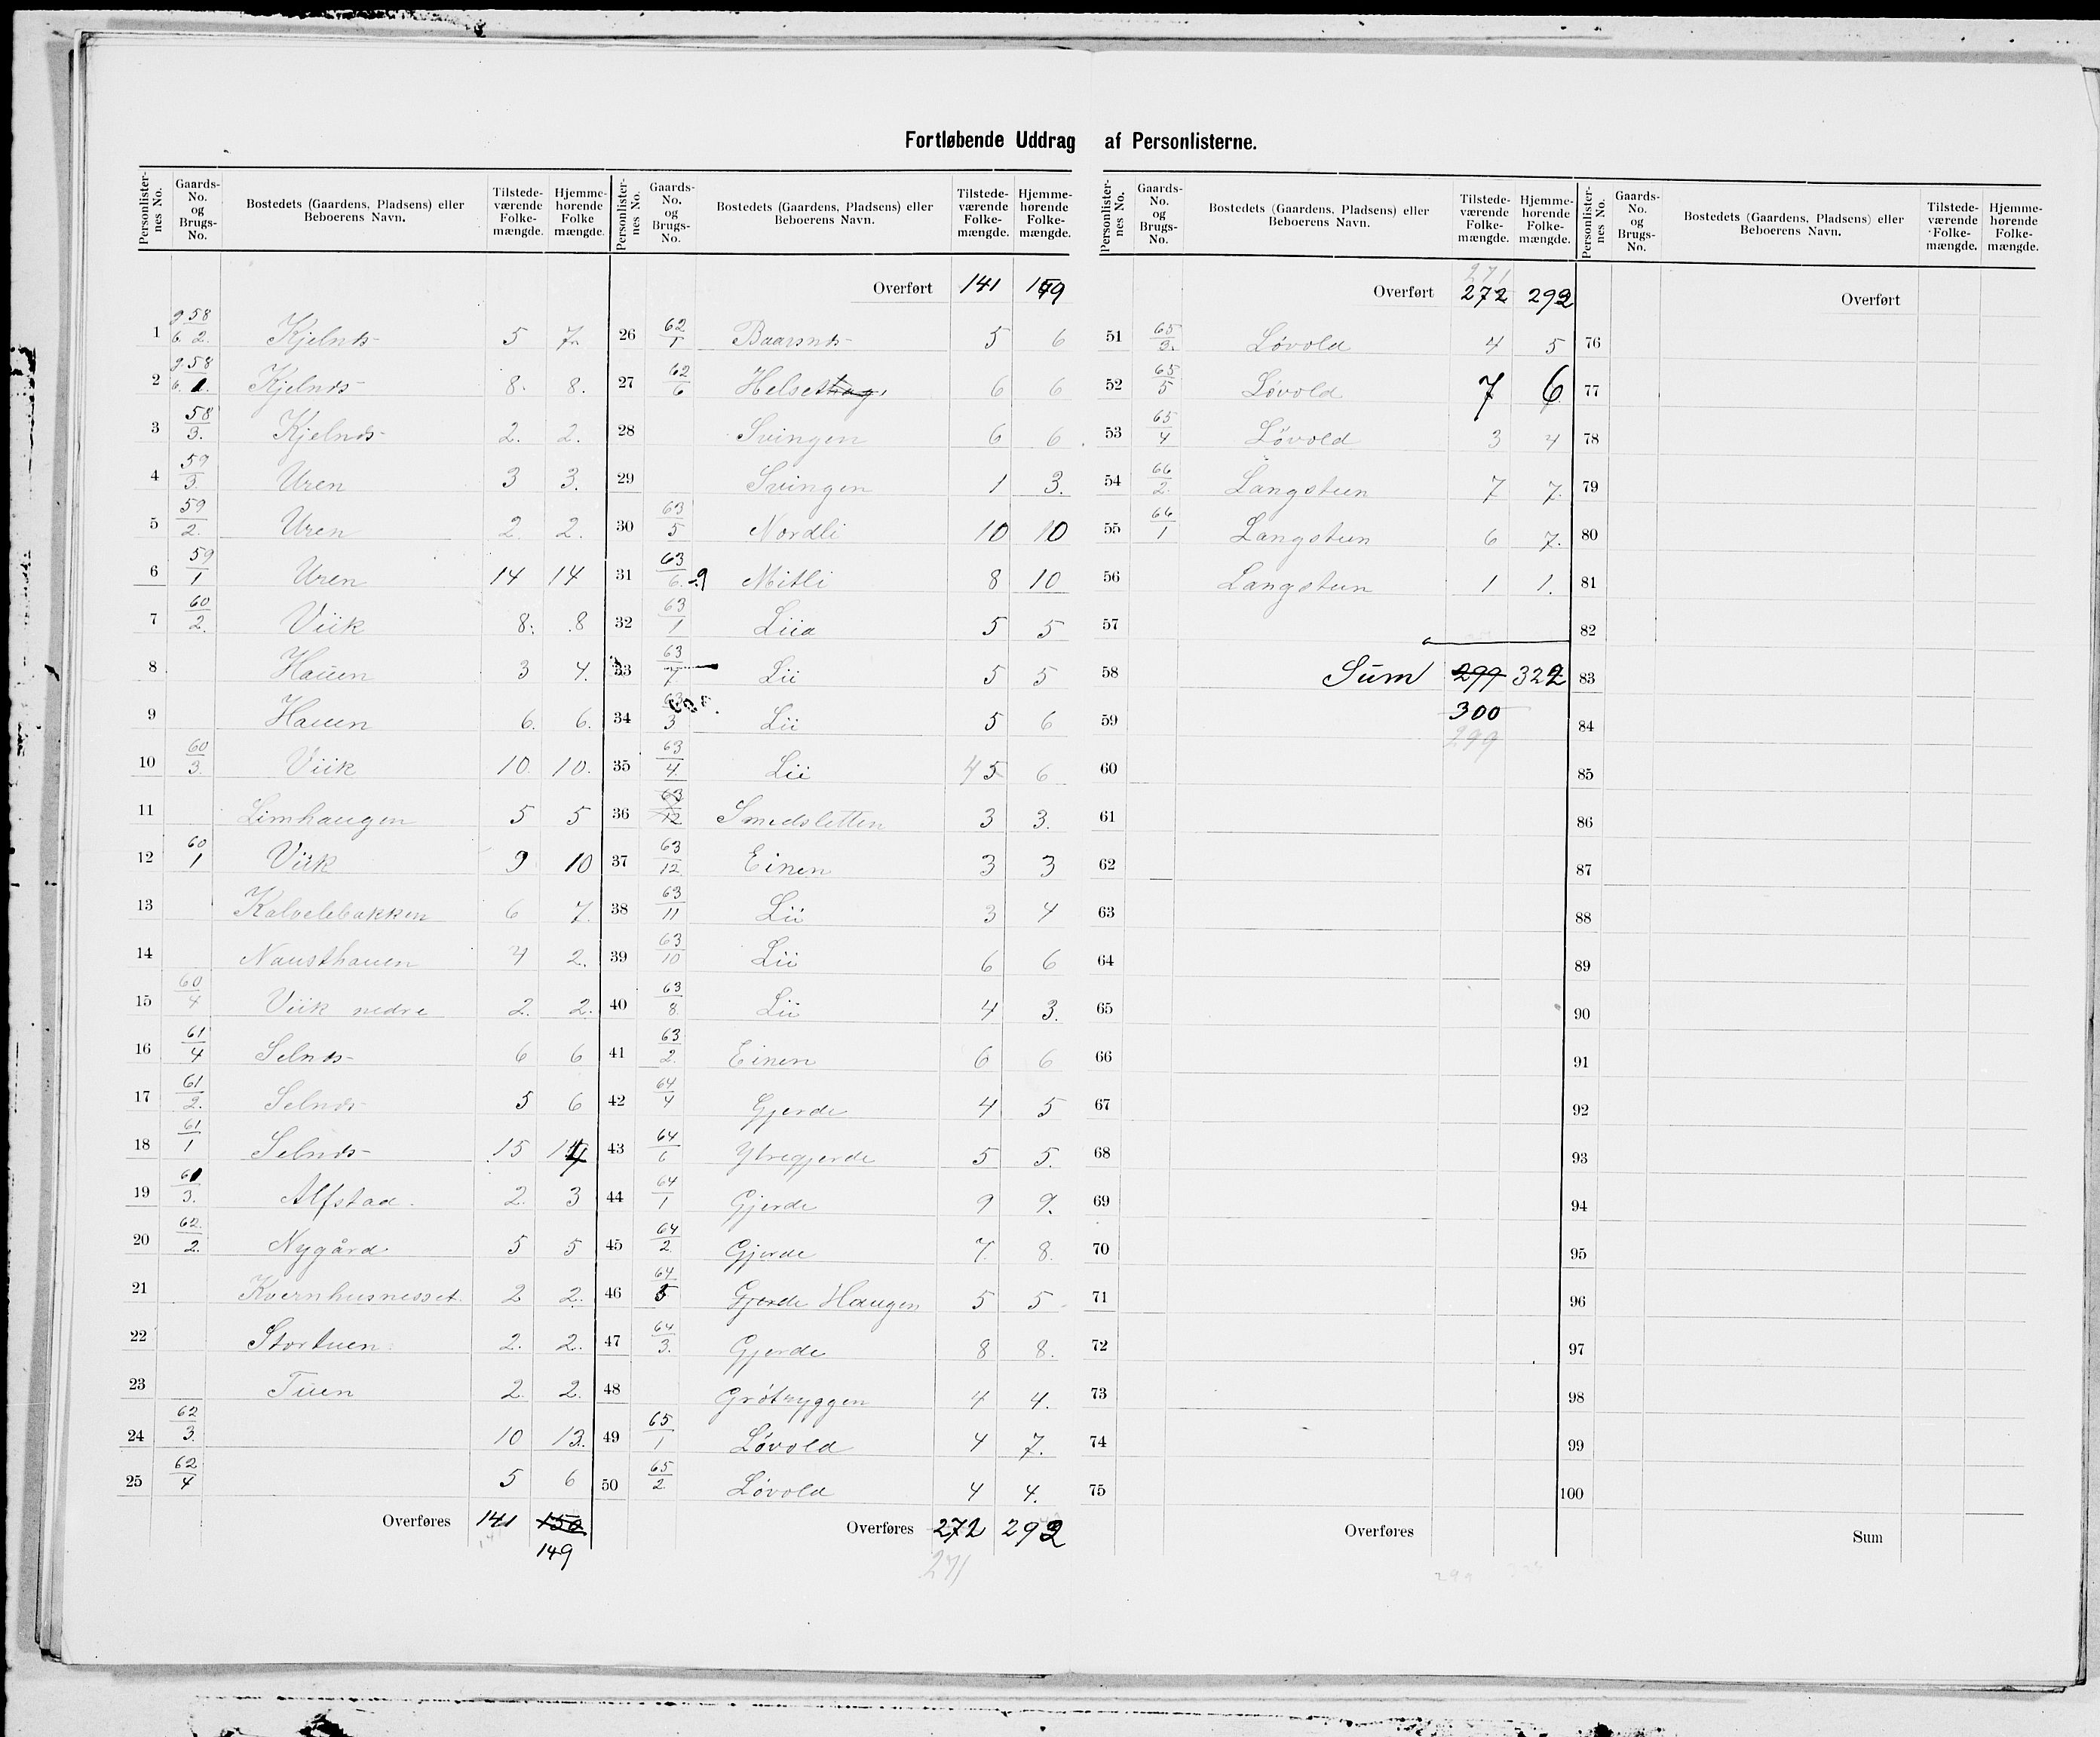 Fortløbende Uddrag af Personlisterne.
Personlisternes No. Gaards-No. og Brugs-No. Bostedets (Gaardens, Pladsens) eller Beboerens Navn. Tilstedeværende Folkemængde. Hjemmehørende Folkemængde.
1 g 58 b. 2. Kjelnds 5 7.
2 g. 58 b. 1. Kjelnds 8. 8.
3 58/3. Kjelnds 2. 2.
4 59/3. Uren 3 3.
5 59/2. Uren 2. 2.
6 59/1 Uren 14 14
7 60/2. Viik 8. 8
8 Hauen 3 4.
9 Hauen 6. 6.
10 60/3. Viik 10. 10.
11 Limhaugen 5 5
12 60/1 Viik 9 10
13 Kalvelebakken 6 7.
14 Nausthauen 4 2.
15 60/4 Viik nedre 2. 2.
16 61/4 Selnds 6 6
17 61/2. Selnds 5 6
18 61/1 Selnds 15 14
19 61/3. Alfstad. 2. 3
20 62./2. Nygård 5 5
21 Kvernhusnesset. 2 2.
22 Stortuen 2. 2.
23 Tuen 2. 2.
24 62/3. 10 13.
25 62/4 5 6
Overføres 141 150
149
Personlisternes No. Gaards-No. og Brugs-No. Bostedets (Gaardens, Pladsens) eller Beboerens Navn. Tilstedeværende Folkemængde. Hjemmehørende Folkemængde.
Overført 141 149
26 62/1 Baarsnds 5 6
27 62/6 Helsethag 6 6
28 Svingen 6 6
29 Svingen 1 3.
30 63/5 Nordli 10 10
31 63/6.9 Mitli 8 10
32 63/1 Liia 5 5
33 63/7 Lii 5 5
34 63/3 Lii 5 6
35 63/4. Lii 4 5 6
36 63/12 Smedsletten 3 3.
37 63/12. Einen 3 3
38 63/11 Lii 3 4
39 63/10 Lii 6 6
40 63/8. Lii 4 3.
41 63/2. Einen 6 6
42 64/4 Gjerde 4 5
43 64/6 Ytregjerde 5 5.
44 64/1 Gjerde 9 9.
45 64/2. Gjerde 7. 8.
46 64/5 Gjerde Haugen 5 5
47 64/3. Gjerde 8 8.
48 Grötryggen 4 4.
49 65/1 Lövold 4 7.
50 65/2. Lövold 4 4.
Overføres 272 292
271
Personlisternes No. Gaards-No. og Brugs-No. Bostedets (Gaardens, Pladsens) eller Beboerens Navn. Tilstedeværende Folkemængde. Hjemmehørende Folkemængde.
271
Overført 272 292
51 65/3. Lövold 4 5
52 65/5 Lövold 7 6
53 65/4 Lövold 3 4
54 66/2. Langstun 7 7.
55 66/1 Langstun 6 7.
56 Langstun 1 1.
57
58 Sum 299 322
59 300
299
60
61
62
63
64
65
66
67
68
69
70
71
72
73
74
75
Overføres
Personlisternes No. Gaards-No. og Brugs-No. Bostedets (Gaardens, Pladsens) eller Beboerens Navn. Tilstedeværende Folkemængde. Hjemmehørende Folkemængde.
Overført
76
77
78
79
80
81
82
83
84
85
86
87
88
89
90
91
92
93
94
95
96
97
98
99
100
Sum